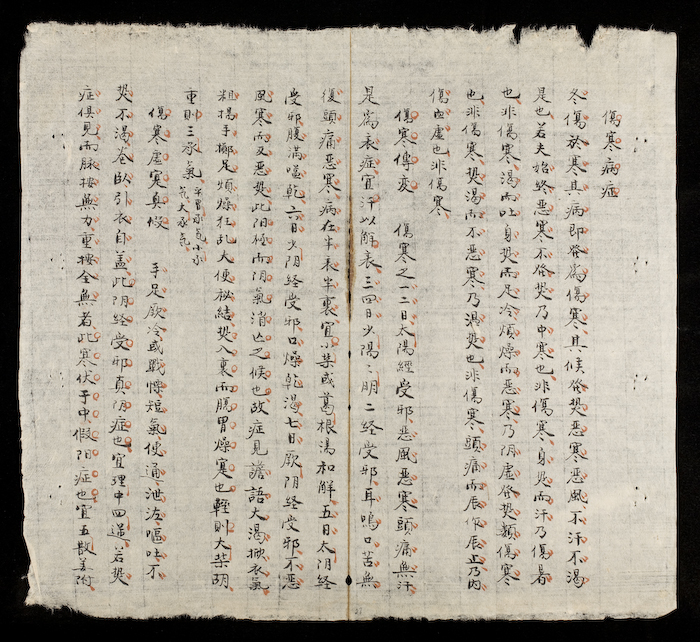 傷寒病症
冬傷於寒其病即發為傷寒其候發熱惡寒惡風不汗不渴
是也若夫始終惡寒不發熱乃中寒也非傷寒身熱而汗乃傷暑
也非傷寒渴而吐身熱而足冷煩燥而惡寒乃阴虚發熱類傷寒
也非傷寒熱渴而不惡寒乃温熱也非傷寒頭痛而辰作辰止乃内
傷血虚也非傷寒
傷寒傳变 傷寒之一二日太陽經受邪惡風惡寒頭痛無汗
是為表症宜汗以解表三四日少陽〻明二経受邪耳鳴口苦無
復頭痛惡寒病在半表半裏宜小柴或葛根湯和解五日太阴経
受邪腹满嗌乾六日少阴経受邪口燥乾渴七日厥阴経受邪不惡
風寒而又惡熱此阳極而阴氣消亾之候也故症見譫語大渴揿衣氣
粗揚手擲足煩燥狂乱大便祕結熱入裏而腸胃燥寔也軽則大柴胡
重則三承氣 平胃承气小承
气大承气
傷寒虚寔真假 手足厥冷或戰慄短氣便通泄泻嘔吐不
熱不渴卷臥引衣自盖此阴経受邪真阴症也宜理中四逆若熱
症俱見而脉按無力重按全無者此寒伏于中假阳症也宜五散姜附